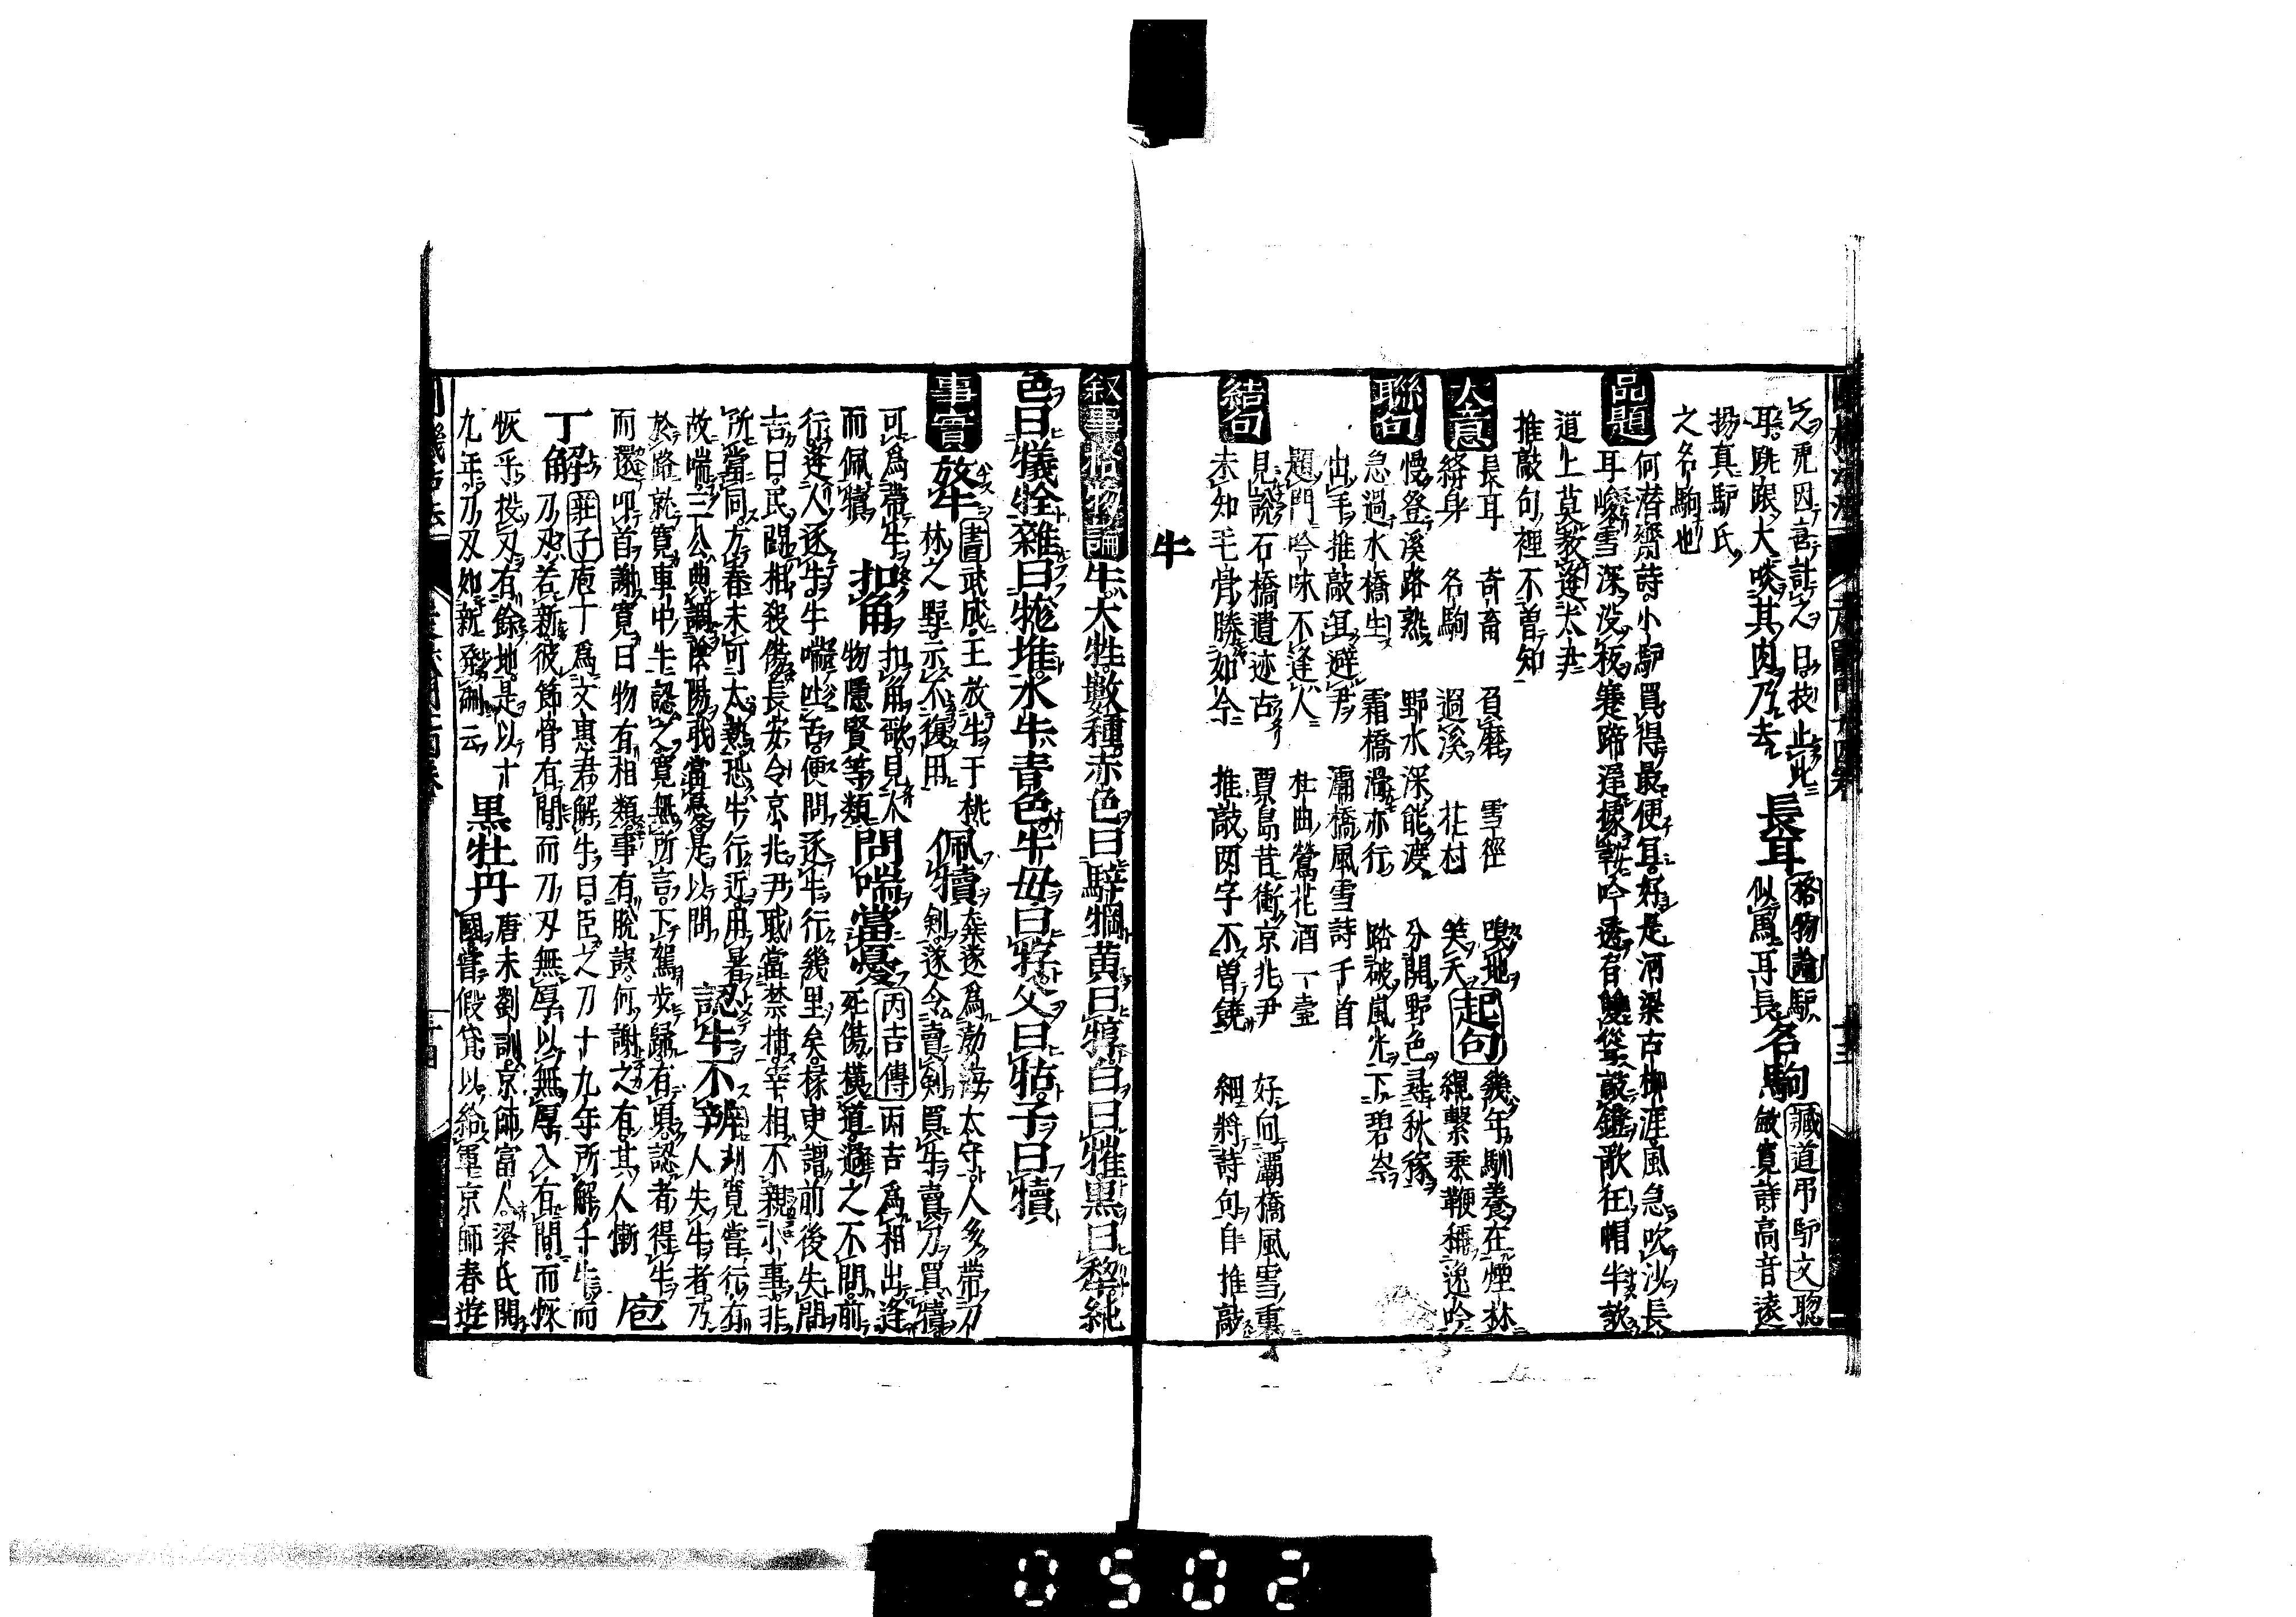 之虎因喜計之曰技止此
耳跳踉大㗖其肉乃去 長耳 格物論驢
似馬耳長 名駒 臧道弔驢文聰
敏寛詩高音遠
揚真驢氏
之名駒也
品題
何潜齋詩小驢買得最便宜好是河梁古柳涯風急吹沙長
耳峻雪深没板蹇蹄遲
道上莫教逢太尹
推敲句裡不曽知
大意
長耳 奇畜 負磨 雪徑 嗅地
絳身 名駒 過溪 花村 笑天
起句
幾年馴養在煙林
縄繋乗鞭穏逸吟
聯句
慢登溪路熟 野水深能渡 分開野色尋秋稼
急過水橋生 霜橋滑亦行 踏破嵐光下碧岑
出手推敲冝避尹 灞橋風雪詩千首
題門吟味不逢人 杜曲鶯花酒一壷
結句
見說石橋遺迹古 賈島昔衝京兆尹 好向灞橋風雪裏
未知毛骨勝如今 推敲两字不曽饒 細將詩句自推敲
牛
叙事 格物論 牛大牲數種赤色曰騂犅黄曰犉白曰㹊黒曰犂純
色曰犠牷雜曰牻堆水牛青色牛毋曰牸父曰牯子曰犢
事實
放牛 書武成王放牛于桃
林之野示不復用 佩犢 龔遂爲渤海太守人多帶刀
剣遂令賣剣買牛賣刀買犢
可爲帶牛
而佩犢 扣角 扣角歌見人
物隱賢等類 問喘當憂 丙吉傳 丙吉爲相出逢
死傷横道過之不問前
行逢人逐牛牛喘吐舌便問逐牛行幾里矣掾吏謂前後失問
吉曰民鬪相殺傷長安令京兆尹職當禁捕宰相不親小事非
所當問方春未可太熱恐牛行近用暑
故喘三公典調陰陽職當憂是以問 認牛不辨 劉寛嘗行有
人失牛者乃
於路就寛車中牛認之寛無所言下駕步歸有頃認者得牛
而還叩首謝寛曰物有相類事有脫誤何謝之有其人慚 庖
丁解 莊子 庖丁爲文惠君解牛曰臣之刀十九年所解千牛而
刀刃若新彼節骨有間而刀刃無厚以無厚入有間而恢
恢乎投刃有餘地是以十
九年刀刃如新發硎云 黒牡丹 唐末劉訓京師富人梁氏開
國嘗假貸以給軍京師春遊
0502